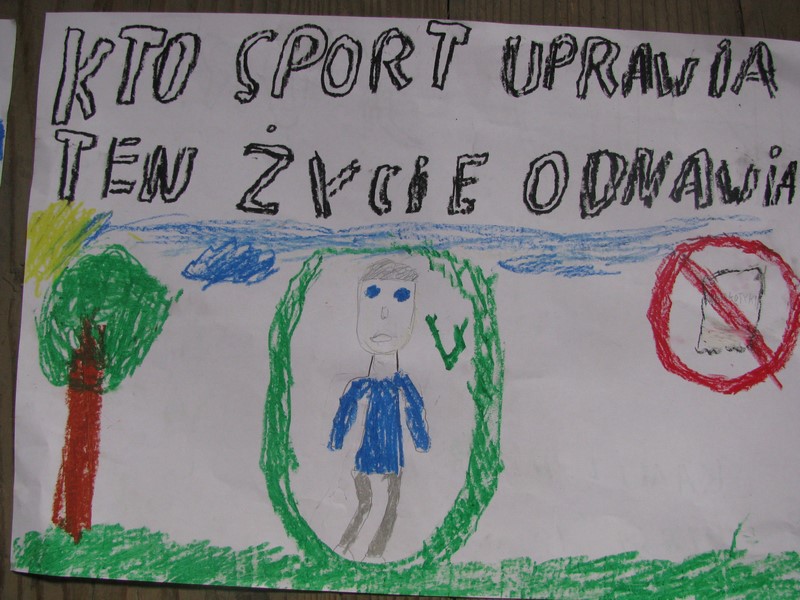 KTO SPORT UPRAWIA
TEN ŻYCIE ODNAWIA